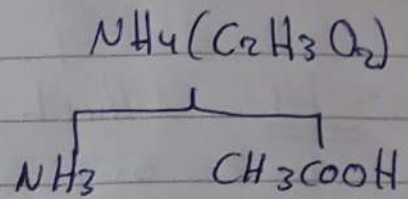 NH4(C2H3O2)
NH3 CH3COOH